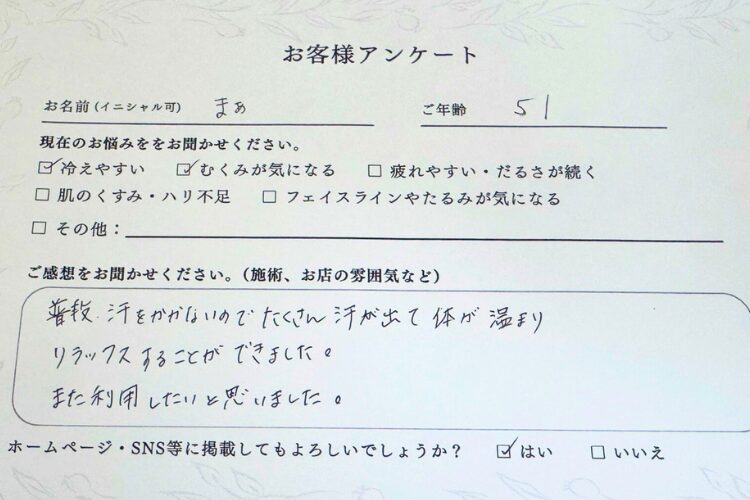 お客様アンケート
お名前(イニシャル可) まぁ ご年齢 51
現在のお悩みををお聞かせください。
☑冷えやすい ☑むくみが気になる □疲れやすい・だるさが続く
□肌のくすみ・ハリ不足 □フェイスラインやたるみが気になる
□その他：
ご感想をお聞かせください。(施術、お店の雰囲気など)
普段、汗をかかないのでたくさん汗が出て体が温まり
リラックスすることができました。
また利用したいと思いました。
ホームページ・SNS等に掲載してもよろしいでしょうか？ ☑はい □いいえ